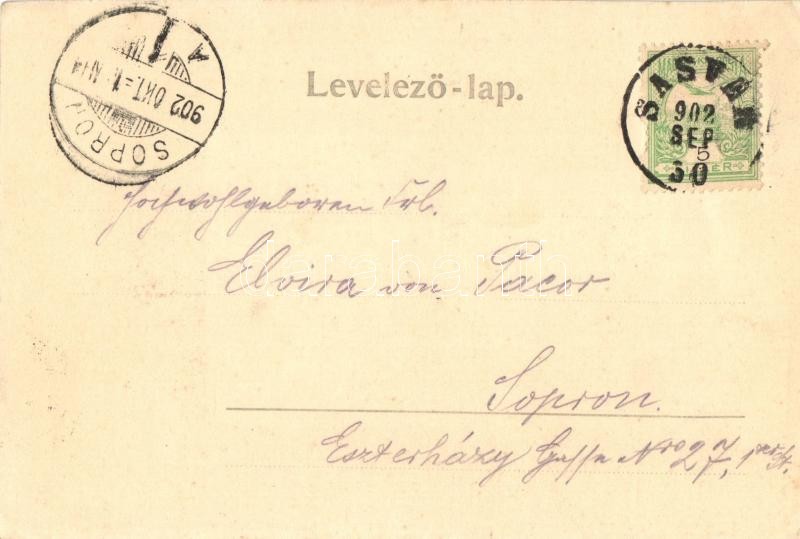 SOPRON
902 OKT.-1. N
A 1
Levelező-lap.
SASVÁR
902
SEP
30
5
Hochwohlgeboren Frl.
Elvira von Pacor
darabanth
Sopron.
Eszterházy Gasse Nro 27, 1